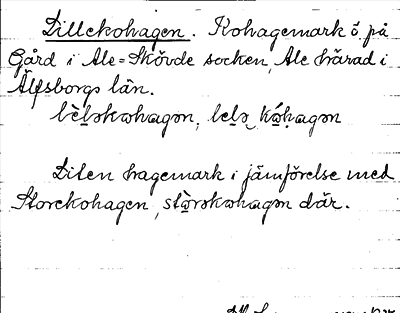 Lillekohagen. Kohagemark ö. på
Gård i Ale-Skövde socken, Ale härad i
Älfsborgs län.
lèlskwhagən, lelə kóhagən
Liten hagemark i jämförelse med
Storekohagen, stòrskwhagən där.